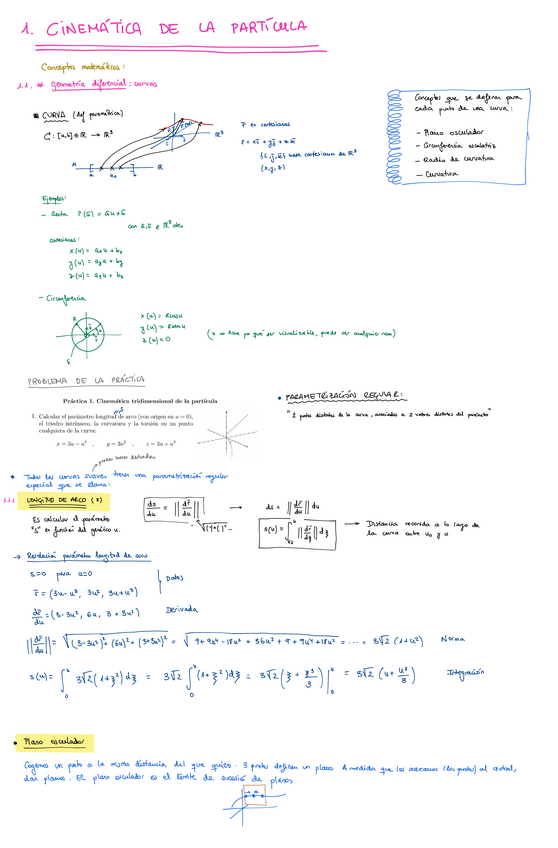 1. CINEMÁTICA DE LA PARTÍCULA
Conceptos matemáticos:
1.1. * Geometría diferencial: curvas
CURVA (def paramétrica)
C: [a,b] ∈ ℝ → ℝ³
ℝ³
a u₀ b ℝ
r̄ en cartesianas
r̄ = xī + yj̄ + zk̄
{ī, j̄, k̄} base cartesiana de ℝ³
(x,y,z)
Conceptos que se definen para
cada punto de una curva:
- Plano osculador
- Circunferencia osculatriz
- Radio de curvatura
- Curvatura
Ejemplos:
- Recta r̄(u) = āu + b̄
con ā, b̄ ∈ ℝ³ ctes
cartesianas:
x(u) = aₓu + bₓ
y(u) = a_y u + b_y
z(u) = a_z u + b_z
- Circunferencia
x(u) = R cos u
y(u) = R sen u
z(u) = 0
(u no tiene por qué ser visualizable, puede ser cualquier cosa)
PROBLEMA DE LA PRÁCTICA
Práctica 1. Cinemática tridimensional de la partícula
1. Calcular el parámetro longitud de arco (con origen en u = 0),
el triedro intrínseco, la curvatura y la torsión en un punto
cualquiera de la curva:
x = 3u − u³ , y = 3u² , z = 3u + u³
• PARAMETRIZACIÓN REGULAR:
"2 puntos distintos de la curva, asociados a 2 valores distintos del parámetro"
puedes hacer derivadas
• Todas las curvas suaves tienen una parametrización regular
especial que se llama:
1.1.1 LONGITUD DE ARCO (s)
Es calcular el parámetro
"s" en función del genérico u.
ds/du = ||dr̄/du|| → ds = ||dr̄/du|| du
√( )²+( )²...
s(u) = ∫ᵤ₀ᵘ ||dr̄/dξ|| dξ → Distancia recorrida a lo largo de
la curva entre u₀ y u
→ Resolución parámetro longitud de arco
s=0 para u=0
r̄ = (3u-u³, 3u², 3u+u³)
Datos
dr̄/du = (3-3u², 6u, 3+3u²) Derivada
||dr̄/du|| = √((3-3u²)²+(6u)²+(3+3u²)²) = √(9+9u⁴-18u²+36u²+9+9u⁴+18u²) = .... = 3√2 (1+u²) Norma
s(u) = ∫₀ᵘ 3√2(1+ξ²)dξ = 3√2 ∫₀ᵘ (1+ξ²)dξ = 3√2 (ξ + ξ³/3)|₀ᵘ = 3√2 (u + u³/3) Integración
• Plano osculador
Cogemos un pto a la misma distancia del que quiero. 3 ptos definen un plano. A medida que los acercamos (los puntos) al central,
dan planos. El plano osculador es el límite de sucesión de planos